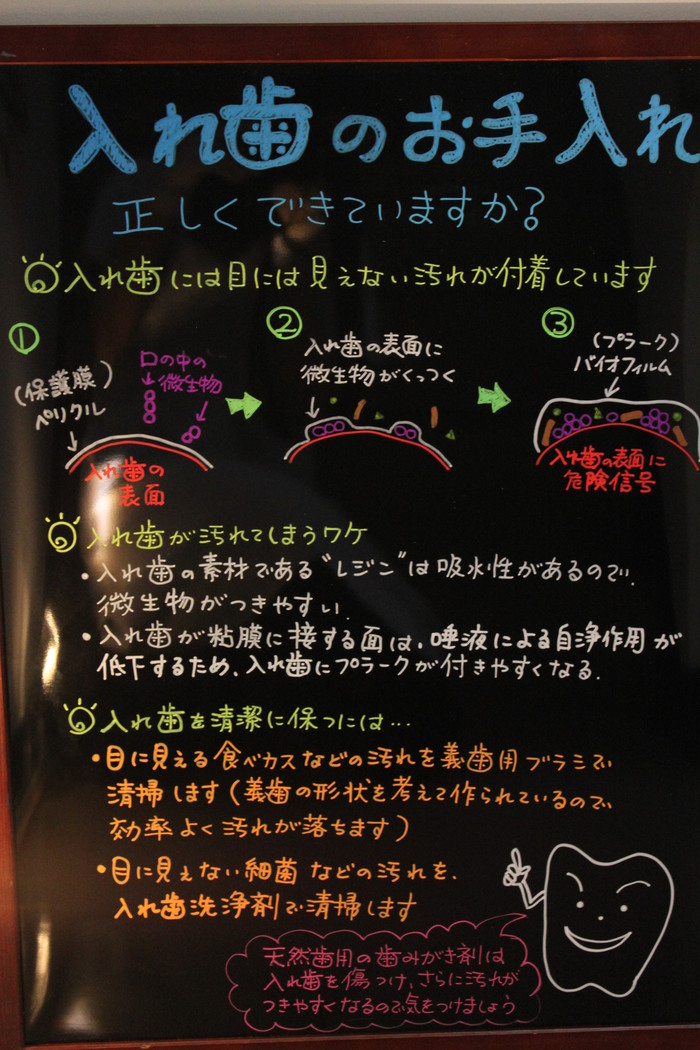 入れ歯のお手入れ
正しくできていますか?
入れ歯には目には見えない汚れが付着しています
①
(保護膜)
ペリクル
口の中の
微生物
入れ歯の
表面
②
入れ歯の表面に
微生物がくっつく
③
(プラーク)
バイオフィルム
入れ歯の表面に
危険信号
入れ歯が汚れてしまうワケ
・入れ歯の素材である"レジン"は吸水性があるので、
微生物がつきやすい。
・入れ歯が粘膜に接する面は、唾液による自浄作用が
低下するため、入れ歯にプラークが付きやすくなる。
入れ歯を清潔に保つには…
・目に見える食べカスなどの汚れを義歯用ブラシで
清掃します(義歯の形状を考えて作られているので、
効率よく汚れが落ちます)
・目に見えない細菌などの汚れを、
入れ歯洗浄剤で清掃します
天然歯用の歯みがき剤は
入れ歯を傷つけ、さらに汚れが
つきやすくなるので気をつけましょう